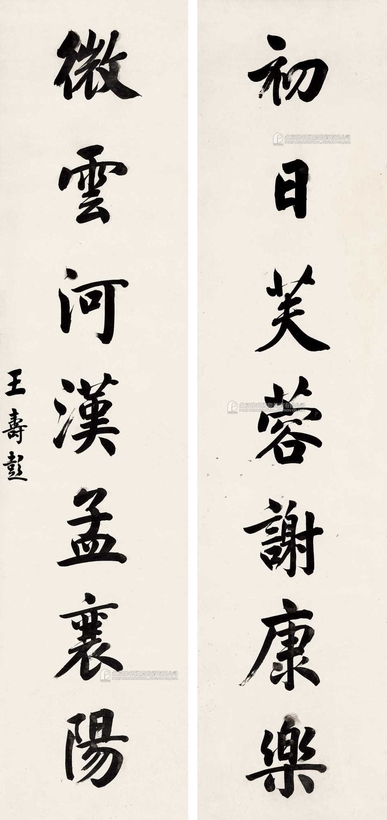 初日芙蓉謝康樂
微雲河漢孟襄陽
王壽彭